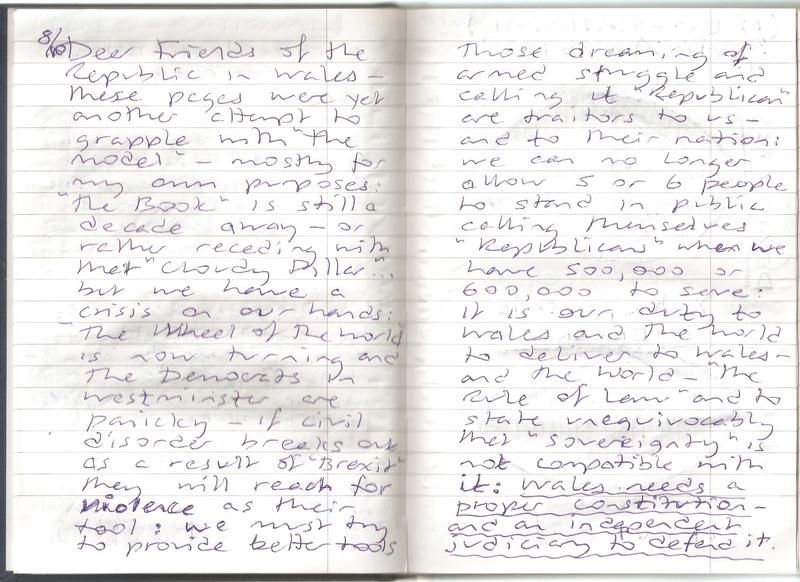 8/10
Dear Friends of the
Republic in Wales –
these pages were yet
another attempt to
grapple with "the
model" – mostly for
my own purposes:
"the Book" is still a
decade away – or
rather receding with
that "Cloudy Pillar"...
but we have a
crisis on our hands:
"The Wheel of the World
is now turning and
the Democrats in
Westminster are
panicky – if civil
disorder breaks out
as a result of "Brexit"
they will reach for
violence as their
tool: we must try
to provide better tools
Those dreaming of
armed struggle and
calling it "Republican"
are traitors to us –
and to their nation:
we can no longer
allow 5 or 6 people
to stand in public
calling themselves
"Republicans" when we
have 500,000 or
600,000 to save:
it is our duty to
Wales and the World
to deliver to Wales –
and the World – "the
rule of law" and to
state unequivocably
that "sovereignty" is
not compatible with
it: Wales needs a
proper constitution –
and an independent
judiciary to defend it.